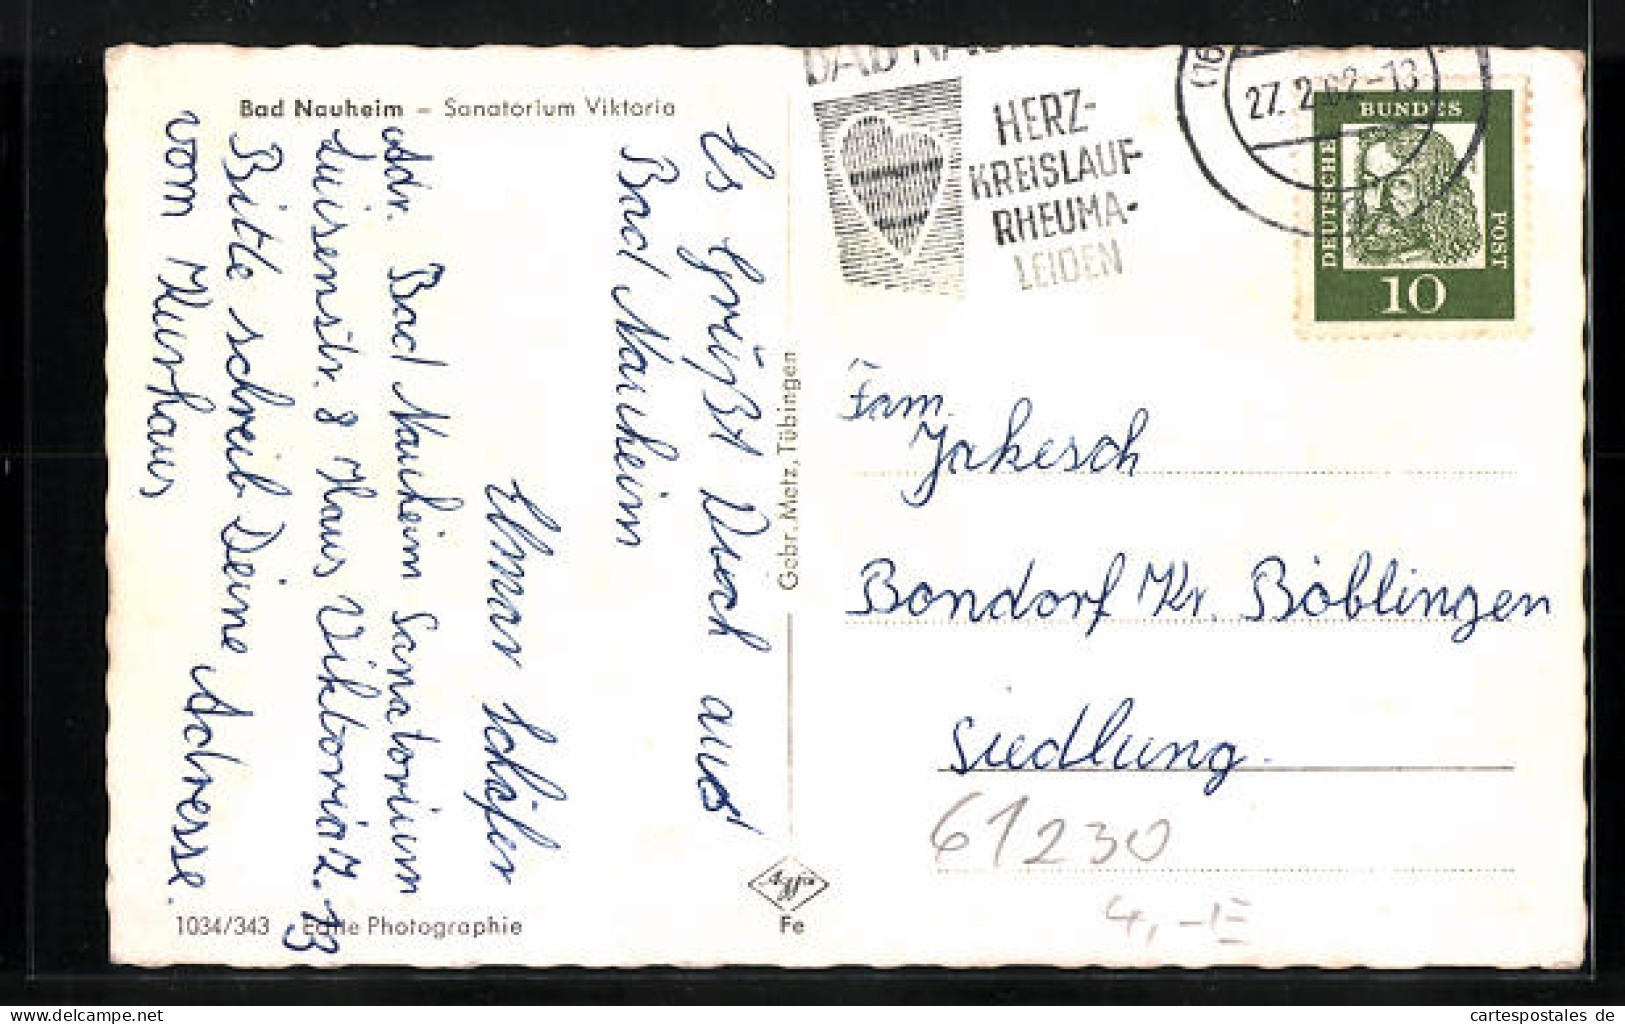 Bad Nauheim – Sanatorium Viktoria
Es grüßt Dich aus
Bad Nauheim
Elmar Schäfer
Adr. Bad Nauheim Sanatorium
Luisenstr. 8 Haus Viktoria Z. 13
Bitte schreib Deine Adresse.
vom Kurhaus
1034/343 Echte Photographie
Gebr. Metz, Tübingen
Agfa
Fe
BAD NAUHEIM
HERZ-
KREISLAUF-
RHEUMA-
LEIDEN
(16
27.2.62-13
DEUTSCHE
BUNDES
POST
10
Fam.
Jakesch
Bondorf Kr. Böblingen
Siedlung.
61230
4,-E
cartespostales de